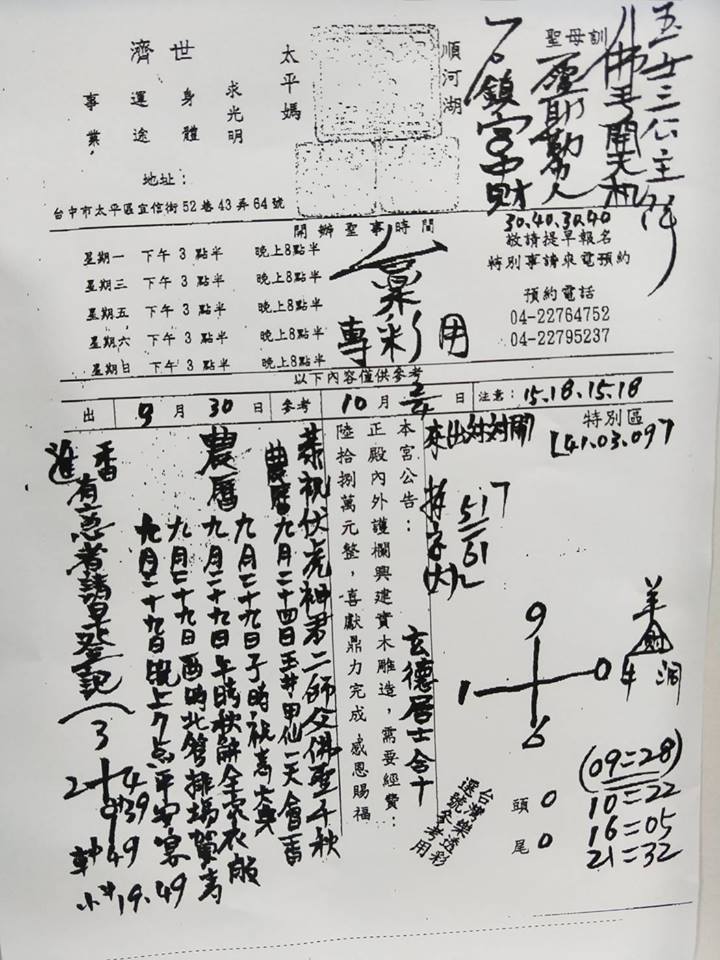 五女三公主降
八佛手開天机
聖母訓
順河湖
石鎮宮中財
太平媽
濟世
求光明
身體
運途
事業
地址：
台中市太平區宜信街52巷43弄64號
30.40.30.40
敬請提早報名
特別事請來電預約
預約電話
04-22764752
04-22795237
開辦聖事時間
星期一 下午3點半 晚上8點半
星期三 下午3點半 晚上8點半
星期五 下午3點半 晚上8點半
星期六 下午3點半 晚上8點半
星期日 下午3點半 晚上8點半
專彩用
以下內容僅供參考
出 9月30日 參考 10月 日 注意：15.18.15.18
特別區
41.03.09
517
61
本宮公告：
正殿內外護欄興建實木雕造，需要經費：
陸拾捌萬元整，喜獻鼎力完成 感恩賜福
玄德居士合十
恭祝伏虎神君二師父佛聖千秋
農曆九月二十四日玉井甲仙二天會香
九月二十九日子時祝壽大典
農曆
九月二十九日午時秋解全家衣服
九月二十九日酉時北管排場賀壽
九月二十九日晚上7点平安宴
進香
有意者請早登記
3
2
4
39
49
19.49
9
1
0
6
羊
牛
洞
頭 0
尾 0
(09=28)
10=22
16=05
21=32
台灣樂透彩
選號參考用